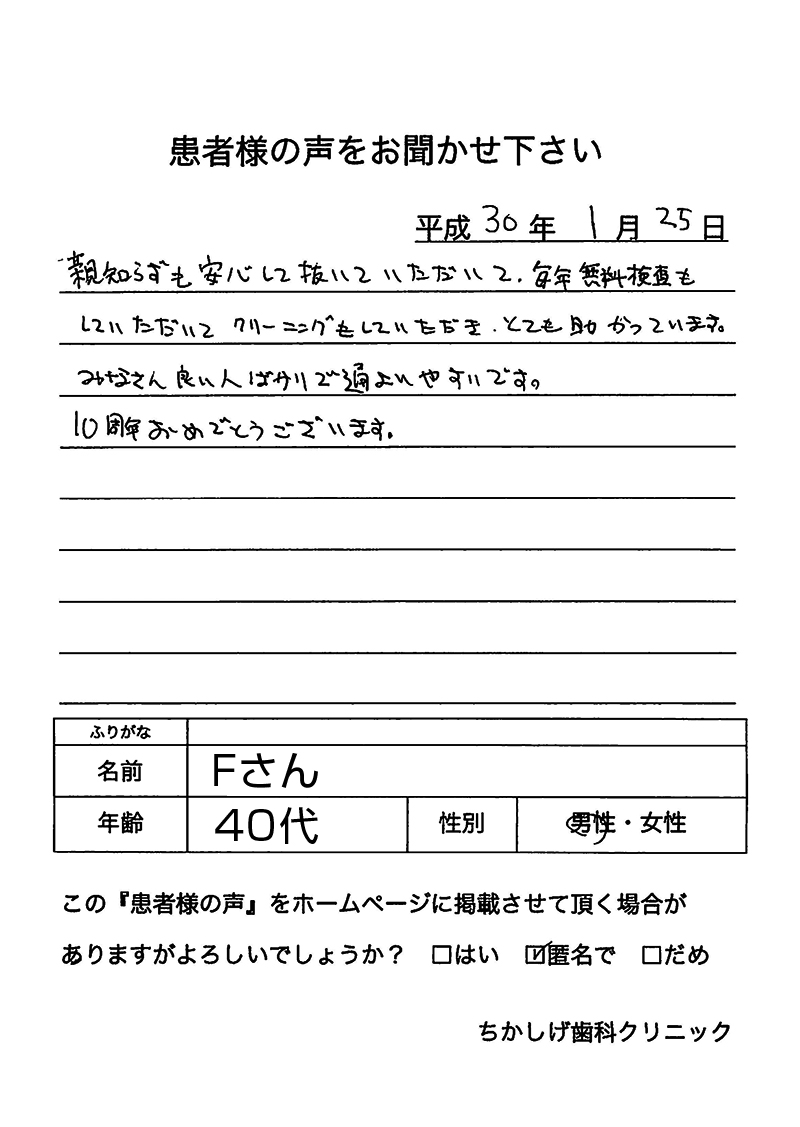 患者様の声をお聞かせ下さい
平成 30 年 1 月 25 日
親知らずも安心して抜いていただいて、毎年無料検査も
していただいて クリーニングもしていただき、とても助かっています。
みなさん良い人ばかりで通よいやすいです。
10周年おめでとうございます。
ふりがな
名前 Fさん
年齢 40代 性別 男性・女性
この『患者様の声』をホームページに掲載させて頂く場合が
ありますがよろしいでしょうか？ □はい ☑匿名で □だめ
ちかしげ歯科クリニック